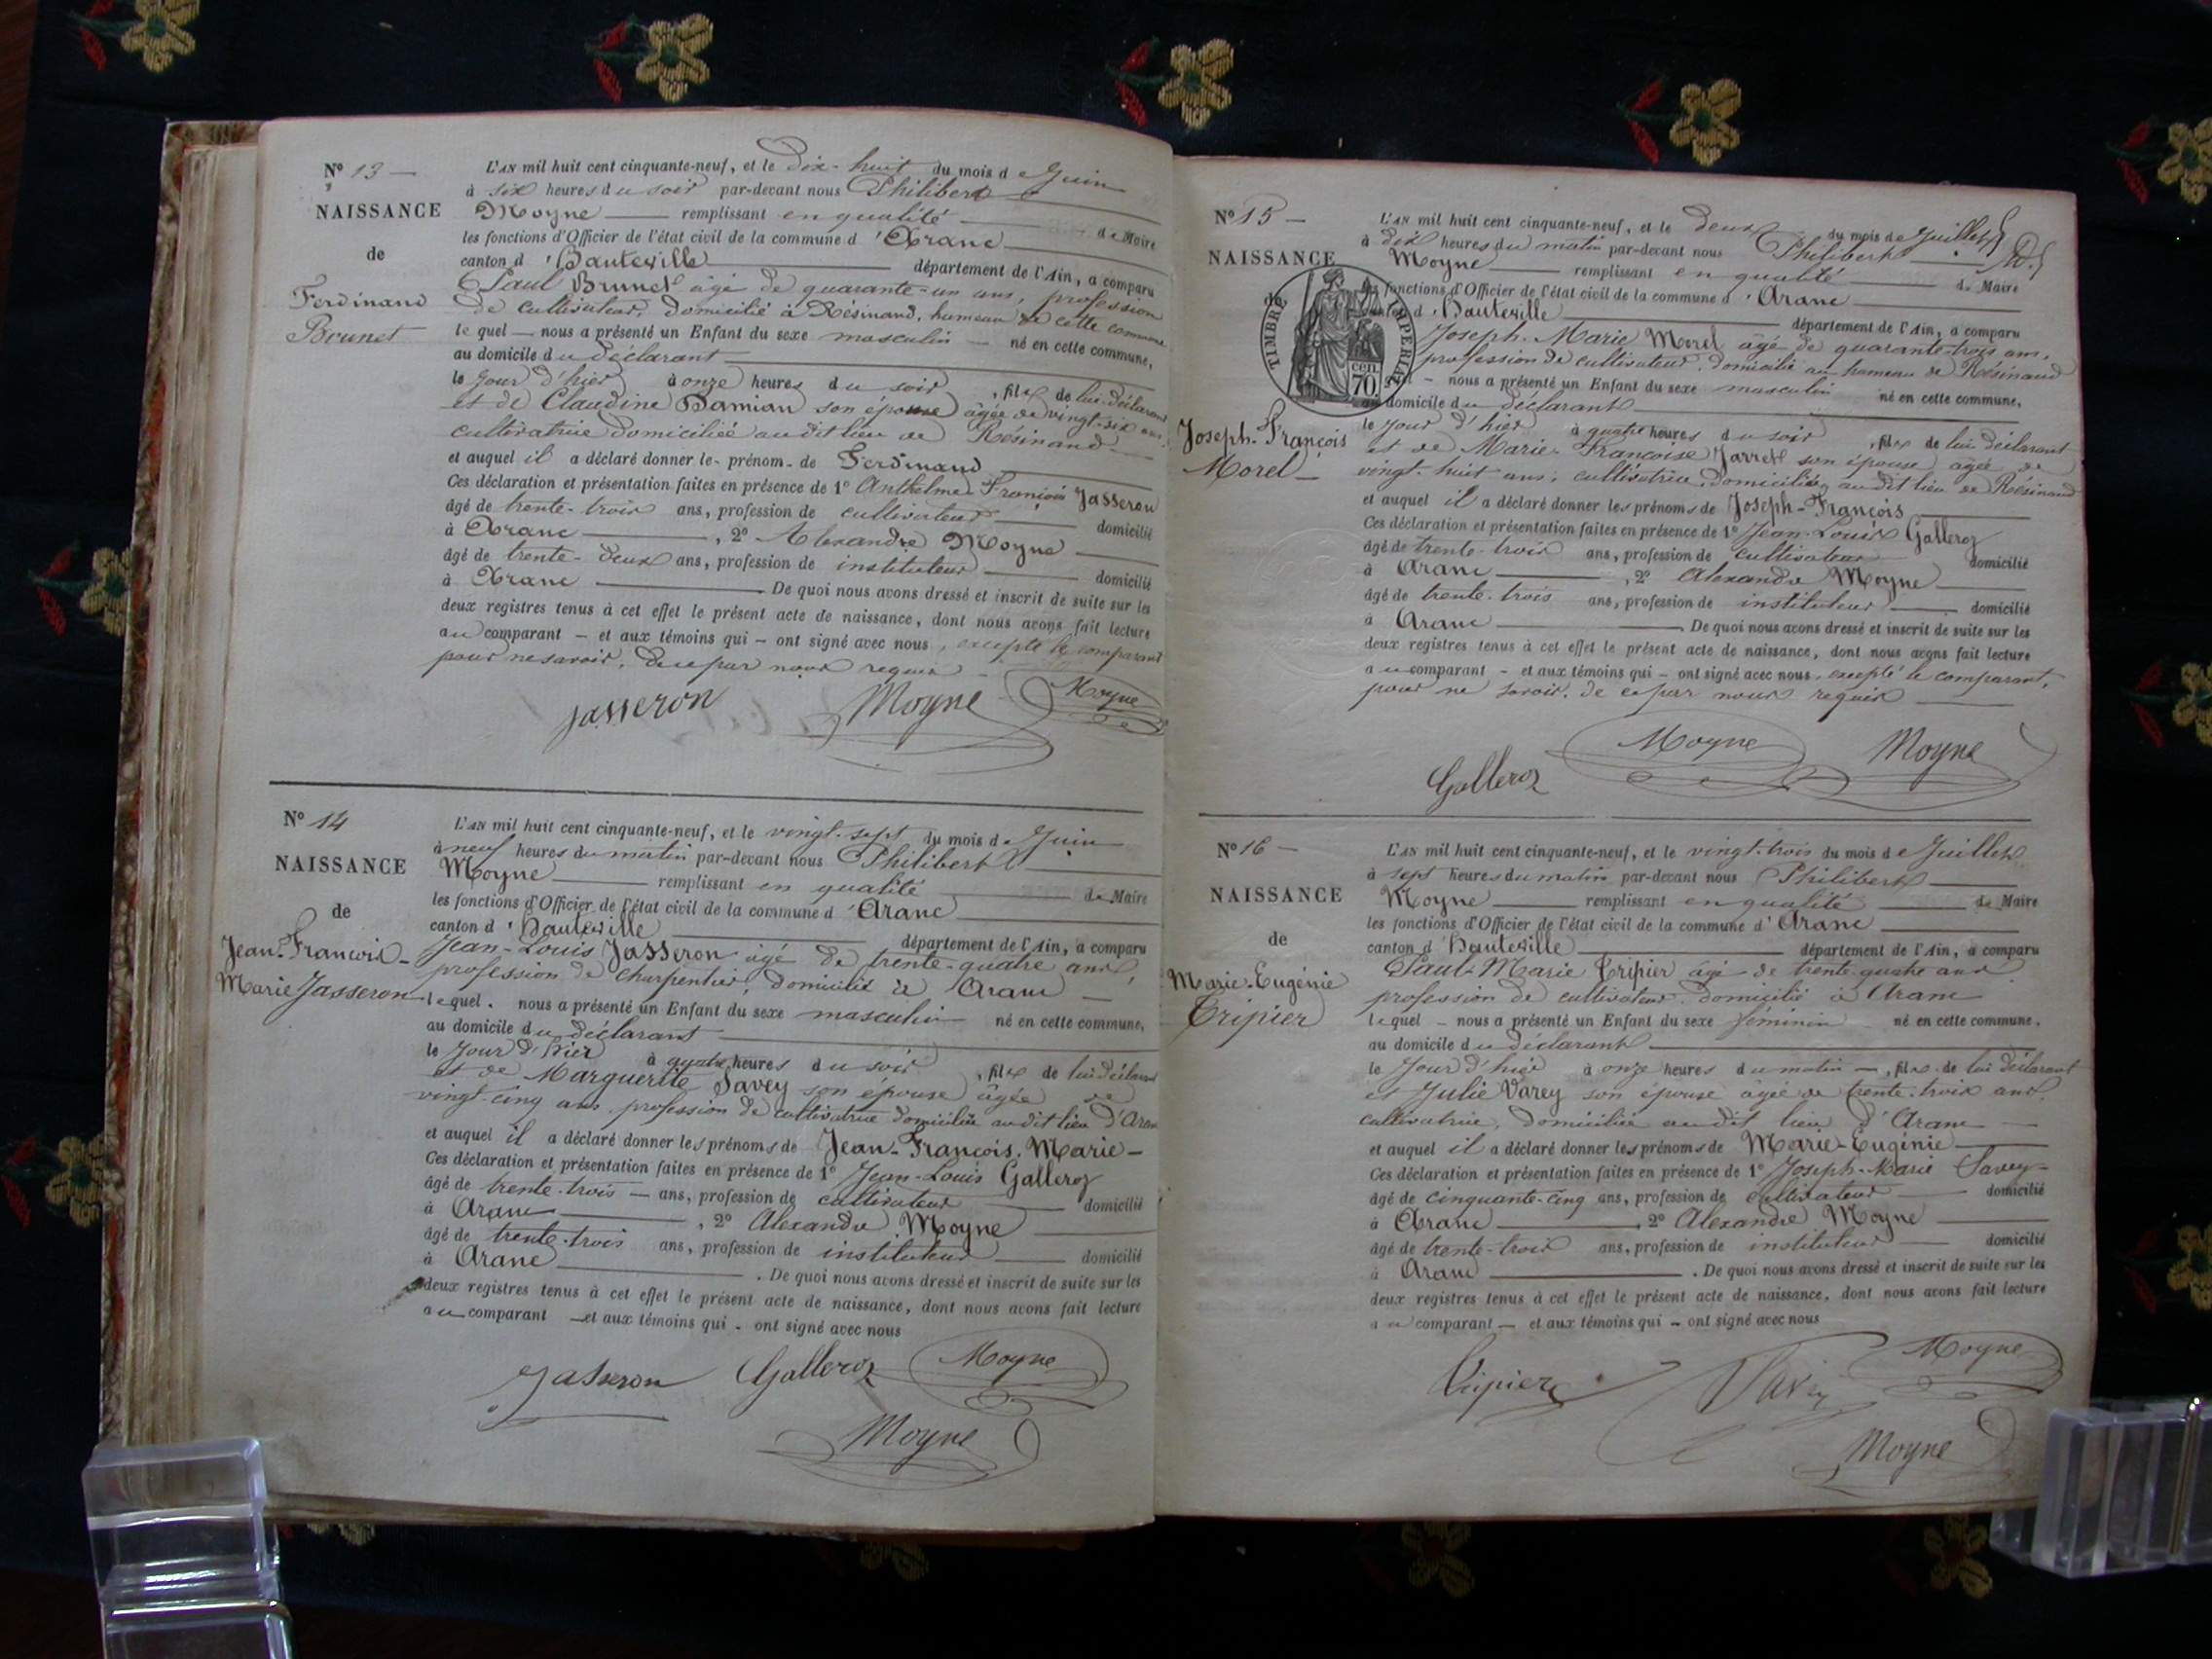 N° 13
NAISSANCE
de
Ferdinand
Brunet
L'AN mil huit cent cinquante-neuf, et le dix-huit du mois de Juin
à six heures du soir par-devant nous Philibert
Moyne remplissant en qualité de Maire
les fonctions d'Officier de l'état civil de la commune d'Aranc
canton d'Hauteville département de l'Ain, a comparu
Paul Brunet âgé de quarante-un ans, profession
de cultivateur, domicilié à Résinand, hameau de cette commune
lequel nous a présenté un Enfant du sexe masculin né en cette commune,
au domicile du déclarant
le jour d'hier à onze heures du soir, fils de lui déclarant
et de Claudine Damian son épouse âgée de vingt-six ans
cultivatrice domiciliée audit lieu de Résinand
et auquel il a déclaré donner le prénom de Ferdinand
Ces déclaration et présentation faites en présence de 1° Anthelme François Jasseron
âgé de trente-trois ans, profession de cultivateur domicilié
à Aranc, 2° Alexandre Moyne
âgé de trente-deux ans, profession de instituteur domicilié
à Aranc. De quoi nous avons dressé et inscrit de suite sur les
deux registres tenus à cet effet le présent acte de naissance, dont nous avons fait lecture
au comparant et aux témoins qui ont signé avec nous, excepté le comparant
pour ne savoir, de ce par nous requis
Jasseron Moyne Moyne
N° 14
NAISSANCE
de
Jean-François-
Marie Jasseron
L'AN mil huit cent cinquante-neuf, et le vingt-sept du mois de Juin
à neuf heures du matin par-devant nous Philibert
Moyne remplissant en qualité de Maire
les fonctions d'Officier de l'état civil de la commune d'Aranc
canton d'Hauteville département de l'Ain, a comparu
Jean-Louis Jasseron âgé de trente-quatre ans,
profession de charpentier, domicilié à Aranc
lequel nous a présenté un Enfant du sexe masculin né en cette commune,
au domicile du déclarant
le jour d'hier à quatre heures du soir, fils de lui déclarant
et de Marguerite Savey son épouse âgée de
vingt-cinq ans, profession de cultivatrice domiciliée audit lieu d'Aranc
et auquel il a déclaré donner les prénoms de Jean-François-Marie
Ces déclaration et présentation faites en présence de 1° Jean-Louis Galleroz
âgé de trente-trois ans, profession de cultivateur domicilié
à Aranc, 2° Alexandre Moyne
âgé de trente-trois ans, profession de instituteur domicilié
à Aranc. De quoi nous avons dressé et inscrit de suite sur les
deux registres tenus à cet effet le présent acte de naissance, dont nous avons fait lecture
au comparant et aux témoins qui ont signé avec nous
Jasseron Galleroz Moyne
Moyne
N° 15
NAISSANCE
de
Joseph-François
Morel
TIMBRE IMPERIAL
70 cen.
L'AN mil huit cent cinquante-neuf, et le deux du mois de Juillet
à dix heures du matin par-devant nous Philibert
Moyne remplissant en qualité de Maire
les fonctions d'Officier de l'état civil de la commune d'Aranc
canton d'Hauteville département de l'Ain, a comparu
Joseph-Marie Morel âgé de quarante-trois ans,
profession de cultivateur, domicilié au hameau de Résinand
lequel nous a présenté un Enfant du sexe masculin né en cette commune,
au domicile du déclarant
le jour d'hier à quatre heures du soir, fils de lui déclarant
et de Marie-Françoise Jarret son épouse âgée de
vingt-huit ans, cultivatrice, domiciliée audit lieu de Résinand
et auquel il a déclaré donner les prénoms de Joseph-François
Ces déclaration et présentation faites en présence de 1° Jean-Louis Galleroz
âgé de trente-trois ans, profession de cultivateur domicilié
à Aranc, 2° Alexandre Moyne
âgé de trente-trois ans, profession de instituteur domicilié
à Aranc. De quoi nous avons dressé et inscrit de suite sur les
deux registres tenus à cet effet le présent acte de naissance, dont nous avons fait lecture
au comparant et aux témoins qui ont signé avec nous, excepté le comparant,
pour ne savoir, de ce par nous requis
Galleroz Moyne Moyne
N° 16
NAISSANCE
de
Marie-Eugénie
Tripier
L'AN mil huit cent cinquante-neuf, et le vingt-trois du mois de Juillet
à sept heures du matin par-devant nous Philibert
Moyne remplissant en qualité de Maire
les fonctions d'Officier de l'état civil de la commune d'Aranc
canton d'Hauteville département de l'Ain, a comparu
Paul-Marie Tripier âgé de trente-quatre ans
profession de cultivateur, domicilié à Aranc
lequel nous a présenté un Enfant du sexe féminin né en cette commune,
au domicile du déclarant
le jour d'hier à onze heures du matin, fils de lui déclarant
et Julie Varey son épouse âgée de trente-trois ans,
cultivatrice, domiciliée audit lieu d'Aranc
et auquel il a déclaré donner les prénoms de Marie-Eugénie
Ces déclaration et présentation faites en présence de 1° Joseph-Marie Savey
âgé de cinquante-cinq ans, profession de cultivateur domicilié
à Aranc, 2° Alexandre Moyne
âgé de trente-trois ans, profession de instituteur domicilié
à Aranc. De quoi nous avons dressé et inscrit de suite sur les
deux registres tenus à cet effet le présent acte de naissance, dont nous avons fait lecture
au comparant et aux témoins qui ont signé avec nous
Tripier Savey Moyne
Moyne